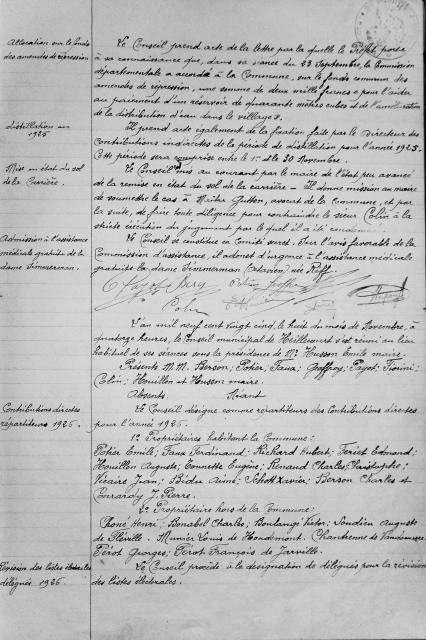 Allocation sur le fonds
des amendes de répression
Le Conseil prend acte de la lettre par laquelle le Préfet porte
à sa connaissance que, dans sa séance du 23 Septembre, la Commission
départementale a accordé à la Commune, sur le fonds commun des
amendes de répression, une somme de deux mille francs pour l'aider
au paiement d'un reservoir de quarante mètres cubes et de l'amélioration
de la distribution d'eau dans le village.
Distillation en
1925
Il prend acte également de la fixation faite par le Directeur des
Contributions indirectes de la période de distillation pour l'année 1925.
Cette période sera comprise entre le 1er et le 30 Novembre.
Mise en état du sol
de la Carrière.
Le Conseil mis au courant par le maire de l'état peu avancé
de la remise en état du sol de la carrière - Il donne mission au maire
de soumettre le cas à Maître Gutton, avocat de la Commune, et par
la suite, de faire toute diligence pour contraindre le sieur Colin à la
stricte exécution du jugement par lequel il a été condamné.
Admission à l'assistance
médicale gratuite de la
dame Zimmerman.
Le Conseil se constitue en Comité secret. Sur l'avis favorable de la
Commission d'assistance, il admet d'urgence à l'assistance médicale
gratuite la dame Zimmerman née Riff
L'an mil neuf cent vingt cinq, le huit du mois de Novembre, à
quatorze heures, le Conseil municipal de Heillecourt s'est réuni au lieu
habituel de ses séances sous la présidence de Mr Husson Emile maire.
Présents M.M. Berson; Potier; Faux; Geoffroy; Payot;
Colin; Houillon et Husson maire.
Absents. Néant
Contributions directes
répartiteurs 1926.
Le Conseil désigne comme répartiteurs des Contributions directes
pour l'année 1926.
1° Propriétaires habitant la Commune:
Potier Emile; Faux Ferdinand; Richard Hubert; Feriet Edmond;
Houillon Auguste; Connette Eugène; Renaud Charles, Christophe;
Vicaire Jean; Bidu Aimé; Schott Xavier; Berson Charles et
J. Pierre.
2° Propriétaire hors de la Commune:
Henri; Bonabel Charles; Boulangé Victor; Auguste
de Fléville. Munier Louis de Houdemont. de Vandoeuvre.
Pérot Georges; Pérot François de Jarville.
Révision des listes électorales
délégués 1926.
Le Conseil procède à la désignation de délégués pour la révision
des listes électorales.